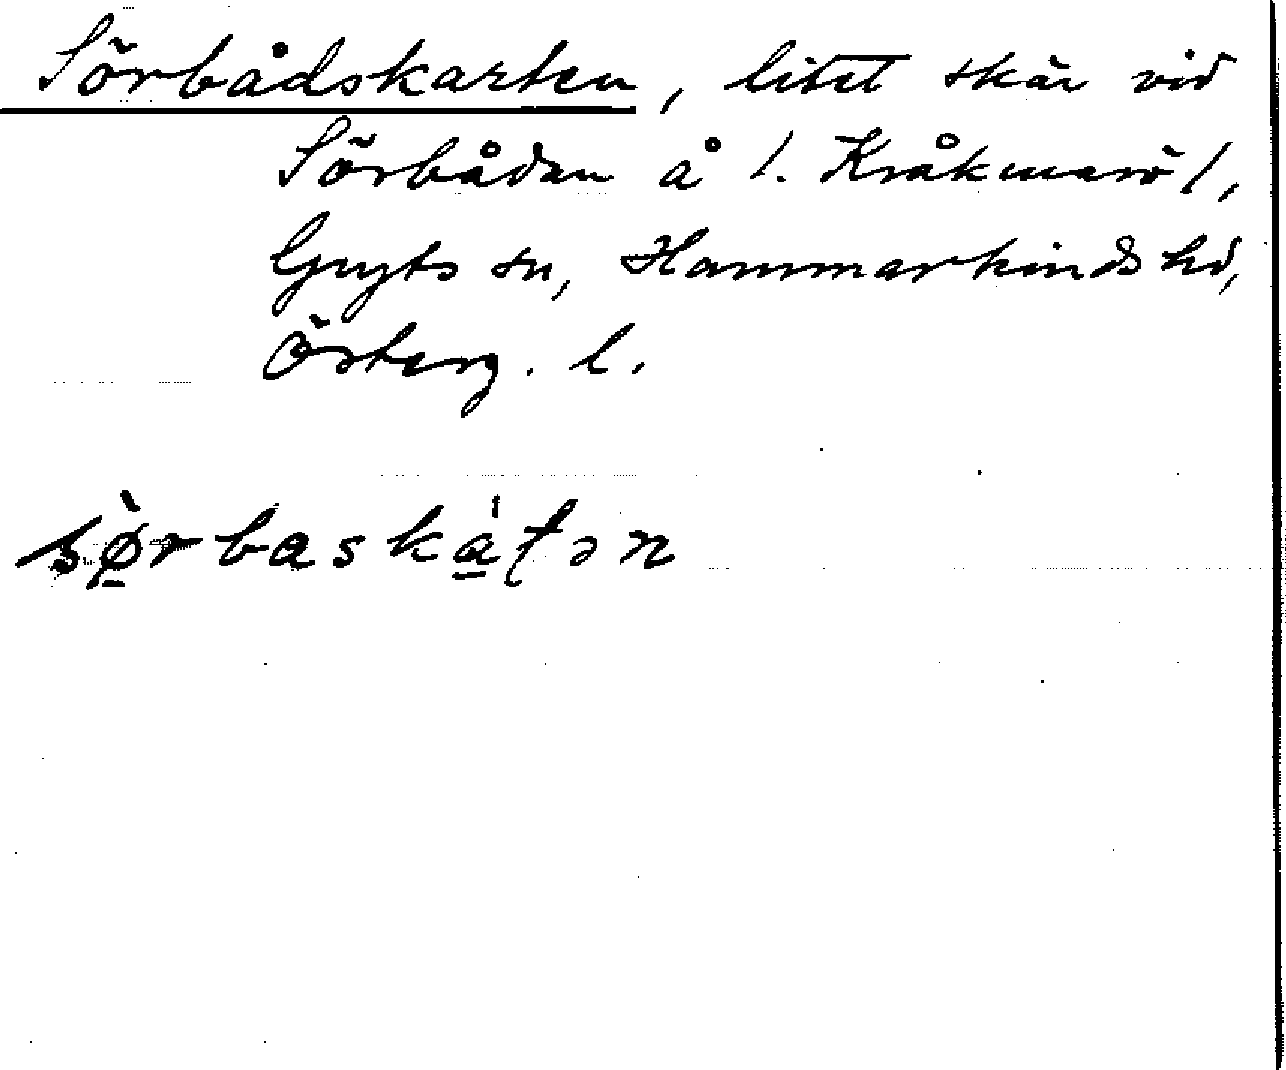 Sörbådskarten, litet skär vid
Sörbådan å l. Kråkmarö l,
Gryts sn, Hammarkinds hd,
Österg. l.
sø̀rbaskátən